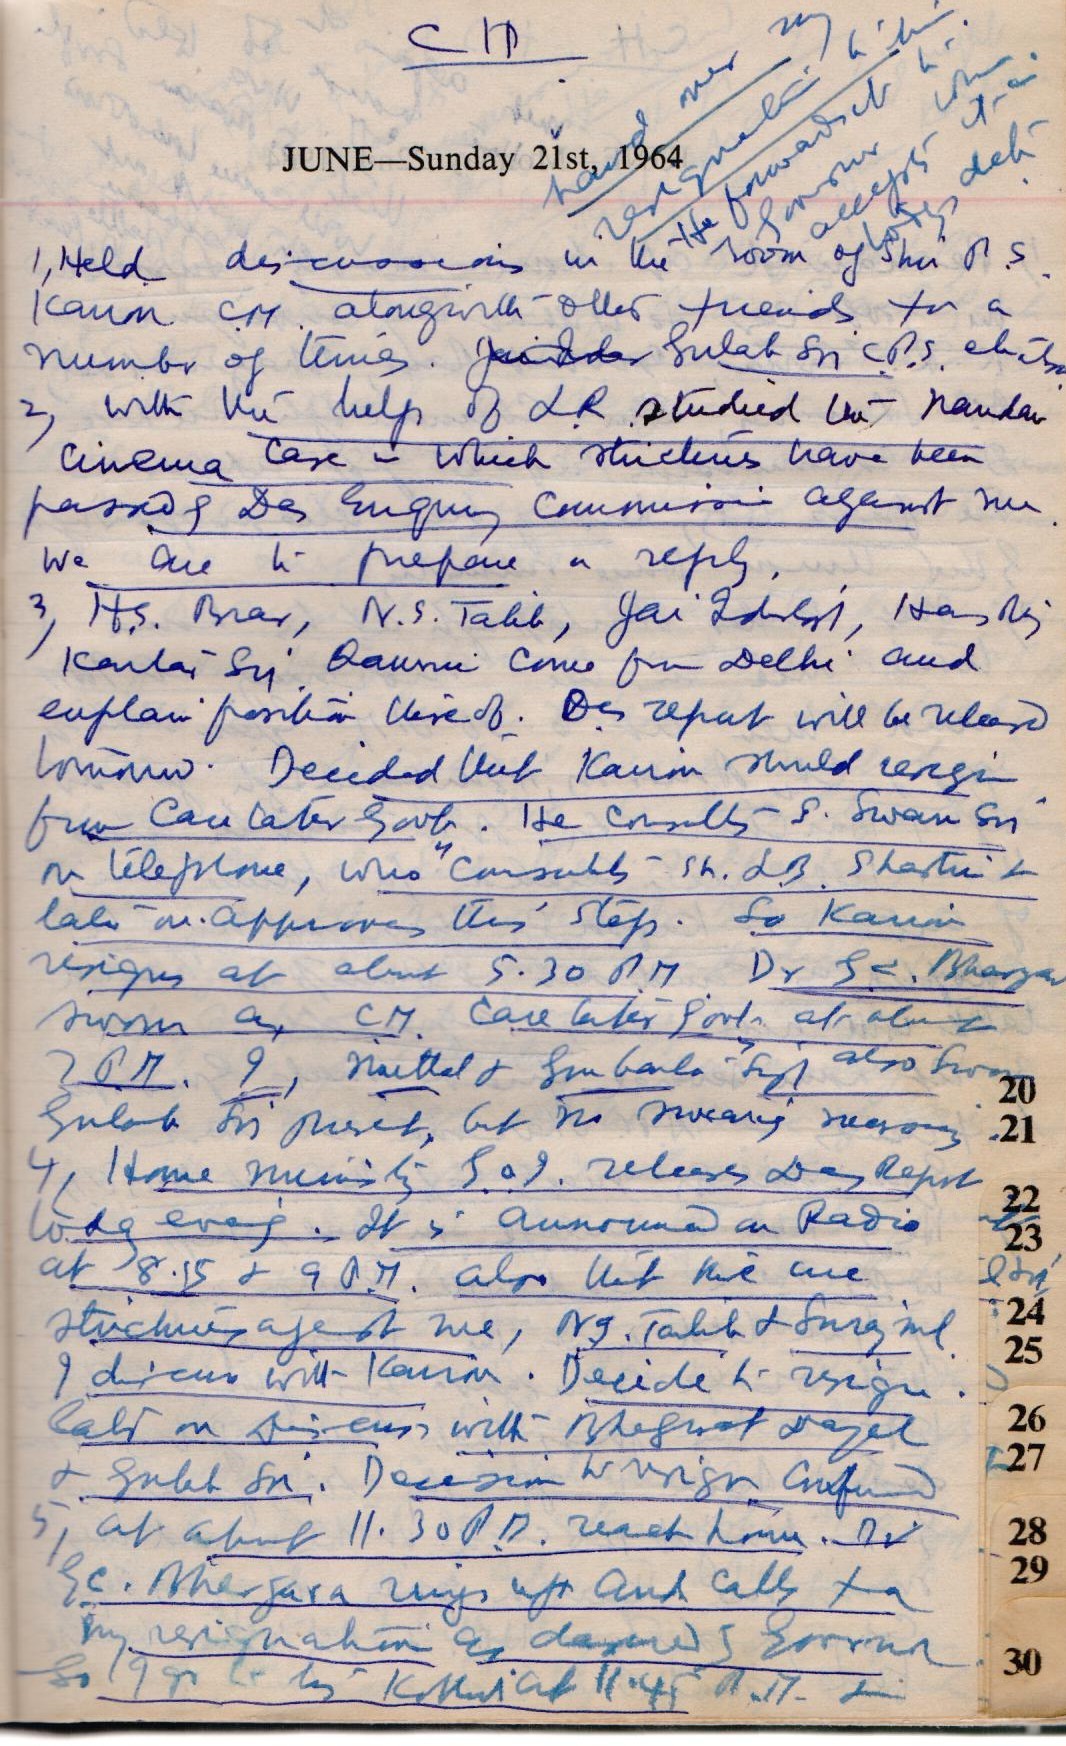 CH
JUNE—Sunday 21st, 1964
1, Held discussions in the room of Shri P.S.
Kairon C.M. alongwith other friends for a
number of times. Gulab Sri C.P.S. also
2, with the help of LR studied the Nandan
Cinema Case in which strictures have been
passed by Das Enquiry Commission against me.
We are to prepare a reply.
3, H.S. Brar, N.S. Talib, Jai Inder Sj, Hans Raj
Kartar Sri come from Delhi and
explain position thereof. Das report will be released
tomorrow. Decided that Kairon should resign
from Caretaker Govt. He consults S. Swarn Sri
on telephone, who consults Sh. L.B. Shastri &
later on approves this step. So Kairon
resigns at about 5.30 P.M Dr G.C. Bhargav
sworn as CM. Caretaker Govt. at about
7 P.M. I, Mittal & Gurbanta Sigh also sworn
Gulab Sri present, but no swearing necessary.
4, Home Ministry G.O.I. releases Das Report
today evenig. It is announced on Radio
at 8.15 & 9 P.M. also that there are
strictures against me, N.S. Talib & Surajmal.
I discuss with Kairon. Decide to resign.
Later on Discuss with Bhagwat Dayal
& Gulab Sri. Decision to resign confirmed
5, at about 11.30 P.M. reach home. Dr
G.C. Bhargava rings up and calls for
my resignation as desired by Governor.
So I go to his Kothi at 11.45 P.M. &
hand over my
resignation to him.
He forwards it to
Governor who
accepts it on
today's date
20
21
22
23
24
25
26
27
28
29
30